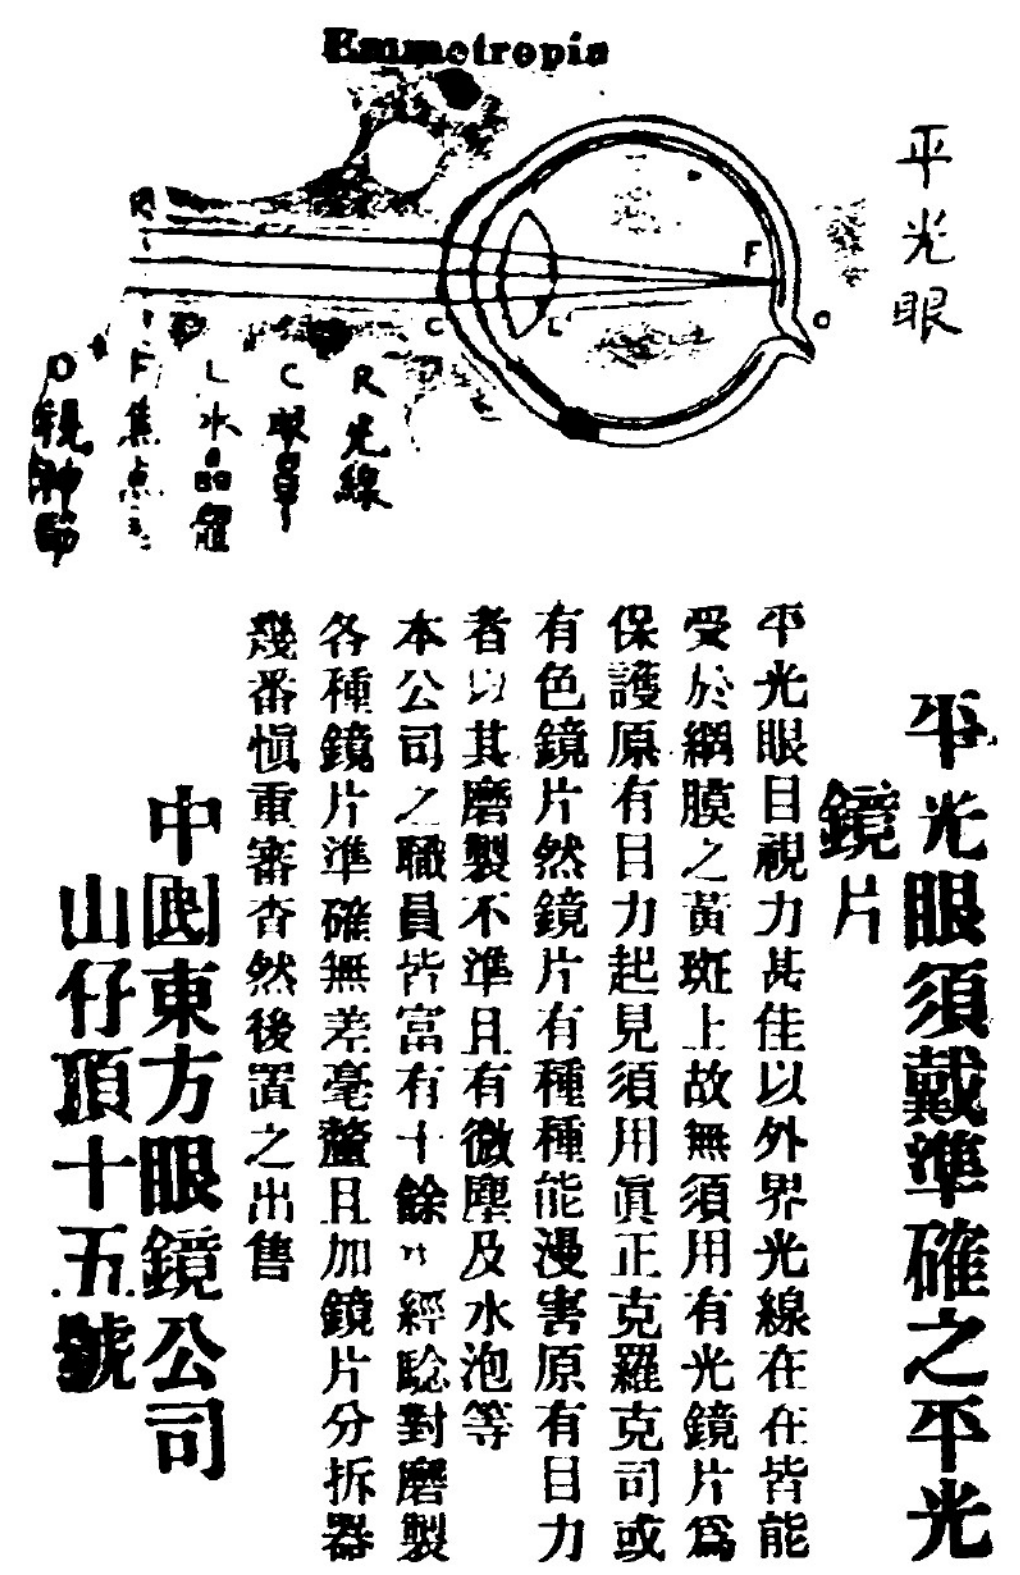 Emmetropia
平光眼
R
F
C
L
O
R 光線
C 眼罩
L 水晶體
F 焦点
O 視神
平光眼須戴準確之平光
鏡片
平光眼目視力甚佳以外界光線在在皆能
受於網膜之黃斑上故無須用有光鏡片爲
保護原有目力起見須用眞正克羅克司或
有色鏡片然鏡片有種種能漫害原有目力
者以其磨製不準且有微塵及水泡等
本公司之職員皆富有十餘年經驗對磨製
各種鏡片準確無差毫釐且加鏡片分拆器
幾番愼重審杳然後置之出售
中國東方眼鏡公司
山仔頂十五號